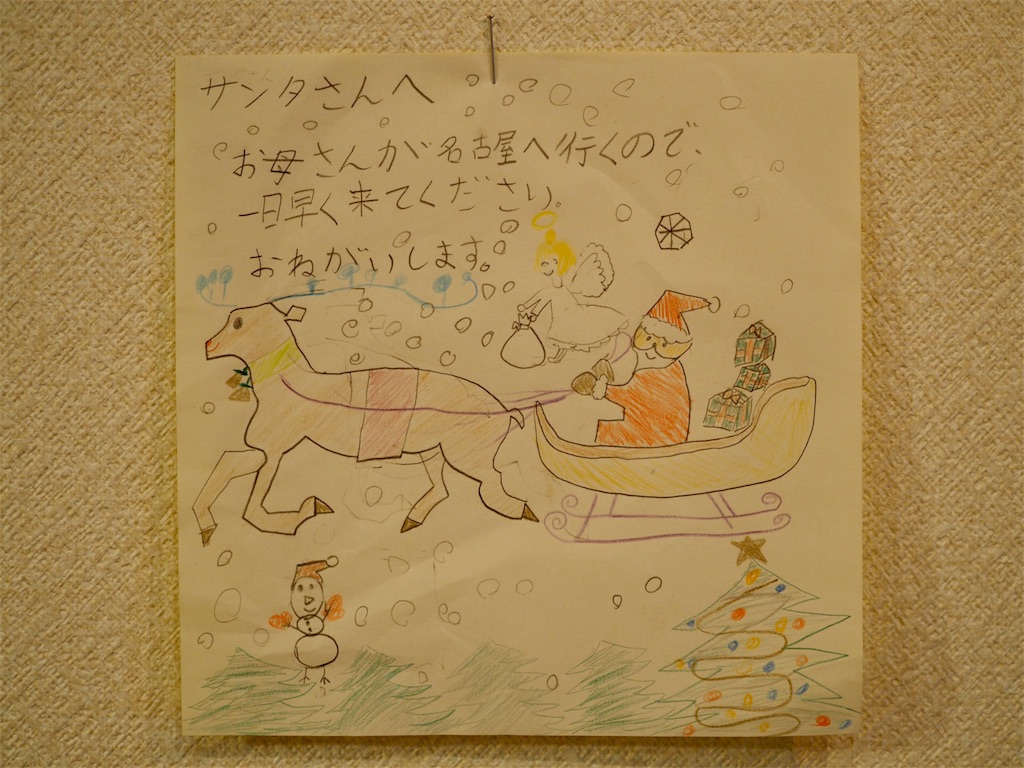 サンタさんへ
お母さんが名古屋へ行くので、
一日早く来てください。
おねがいします。